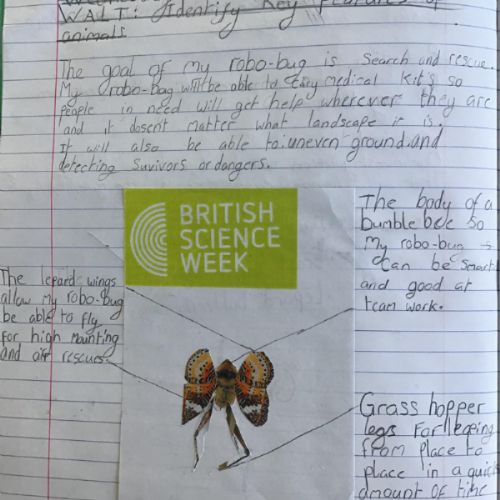 W.A.L.T: Identify Key Features of
animals
The goal of My robo-bug is search and rescue.
My robo-bug will be able to carry medical kit's so
people in need will get help wherever they are
and it dosent matter what landscape it is.
It will also be able to: uneven ground and
detecting suvivors or dangers.
BRITISH
SCIENCE
WEEK
The body of a
bumble bee so
My robo-bug
can be smart
and good at
team work.
The lepard wings
allow my robo-bug
be able to fly
for high mounting
and air rescues.
Grass hopper
legs For leeping
from Place to
place in a quick
amount OF time